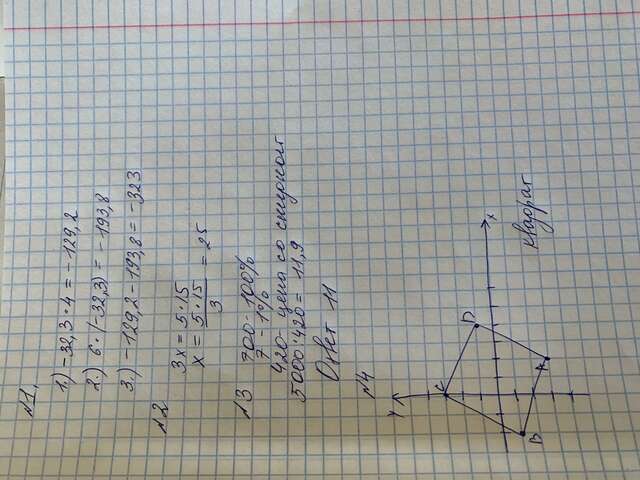 №1.
1.) -32,3 • 4 = -129,2
2.) 6 • (-32,3) = -193,8
3.) -129,2 - 193,8 = -323
№2
3x = 5 • 15
x = 5 • 15 / 3 = 25
№3
700 - 100%
7 - 1%
420 - цена со скидкой
5000 : 420 = 11,9
Ответ 11
№4
y
C
D
x
B
A
квадрат